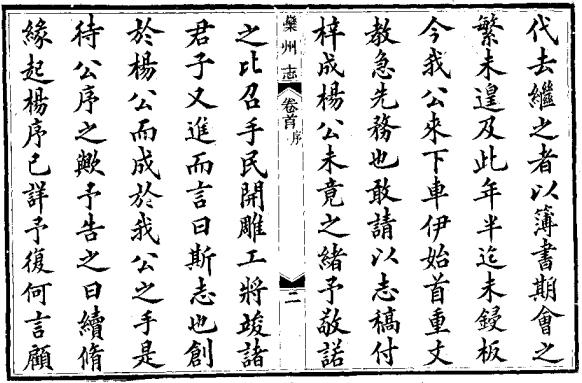 代去繼之者以簿書期會之
繁未遑及此年半迄未鋟板
今我公來下車伊始首重文
教急先務也敢請以志稿付
梓成楊公未竟之緒予敬諾
欒州志
卷首
序
二
之比召手民開雕工將竣諸
君子又進而言曰斯志也創
於楊公而成於我公之手是
待公序之歟予告之曰續脩
緣起楊序已詳予復何言顧